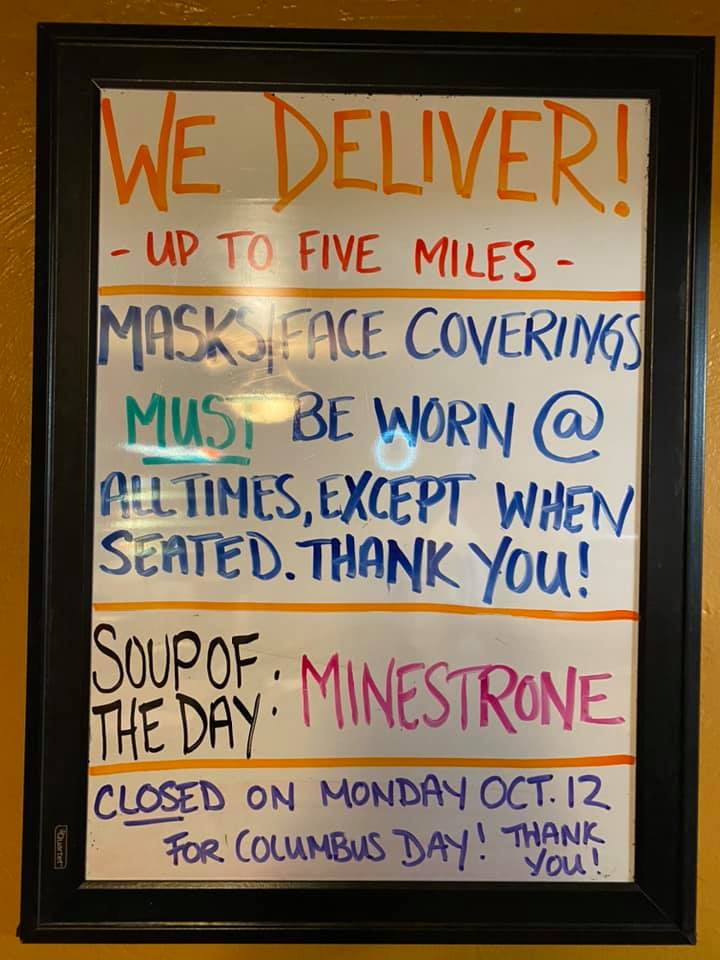 WE DELIVER!
- UP TO FIVE MILES -
MASKS/FACE COVERINGS
MUST BE WORN @
ALL TIMES, EXCEPT WHEN
SEATED. THANK YOU!
SOUP OF
THE DAY: MINESTRONE
CLOSED ON MONDAY OCT. 12
FOR COLUMBUS DAY! THANK
YOU!
Quartet